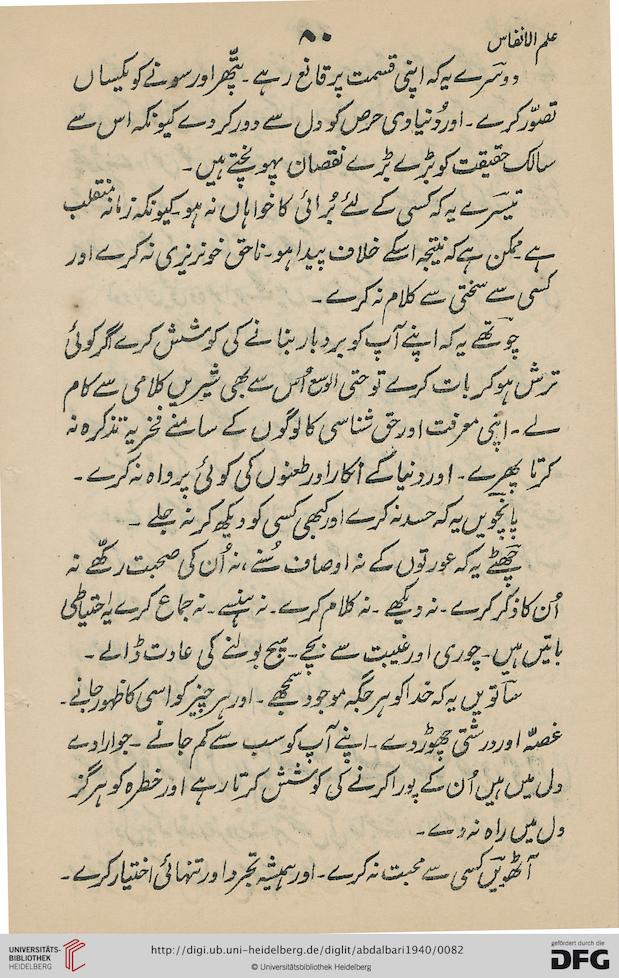 علم الانفاس
۸۰
دوسرے یہ کہ اپنی قسمت پر قانع رہے۔ پتّھر اور سونے کو یکساں
تصوّر کرے۔ اور دُنیاوی حرص کو دل سے دور کر دے کیونکہ اس سے
سالک حقیقت کو بڑے بڑے نقصان پہونچتے ہیں۔
تیسرے یہ کہ کسی کے لئے بُرائی کا خواہاں نہ ہو۔ کیونکہ زمانہ منقلب
ہے ممکن ہے کہ نتیجہ اسکے خلاف پیدا ہو۔ ناحق خونریزی نہ کرے اور
کسی سے سختی سے کلام نہ کرے۔
چوتھے یہ کہ اپنے آپ کو بردبار بنانے کی کوشش کرے اگر کوئی
ترش ہو کر بات کرے تو حتی الوسع اُس سے بھی شیریں کلامی سے کام
لے۔ اپنی معرفت اور حق شناسی کا لوگوں کے سامنے فخریہ تذکرہ نہ
کرتا پھرے۔ اور دنیا کے انکار اور طعنوں کی کوئی پرواہ نہ کرے۔
پانچویں یہ کہ حسد نہ کرے اور کبھی کسی کو دیکھ کر نہ جلے۔
چھٹے یہ کہ عورتوں کے نہ اوصاف سُنے، نہ اُن کی صحبت رکھے نہ
اُن کا ذکر کرے۔ نہ دیکھے۔ نہ کلام کرے۔ نہ ہنسے۔ نہ جماع کرے یہ احتیاطی
باتیں ہیں۔ چوری اور غیبت سے بچے۔ سچ بولنے کی عادت ڈالے۔
ساتویں یہ کہ خدا کو ہر جگہ موجود سمجھے۔ اور ہر چیز کو اسی کا ظہور جانے۔
غصّہ اور درشتی چھوڑ دے۔ اپنے آپ کو سب سے کم جانے۔ جو ارادے
دل میں ہیں اُن کے پورا کرنے کی کوشش کرتا رہے اور خطرہ کو ہرگز
دل میں راہ نہ دے۔
آٹھویں کسی سے محبت نہ کرے۔ اور ہمیشہ تجرد اور تنہائی اختیار کرے۔
UNIVERSITÄTS-
BIBLIOTHEK
HEIDELBERG
http://digi.ub.uni-heidelberg.de/diglit/abdalbari1940/0082
© Universitätsbibliothek Heidelberg
gefördert durch die
DFG